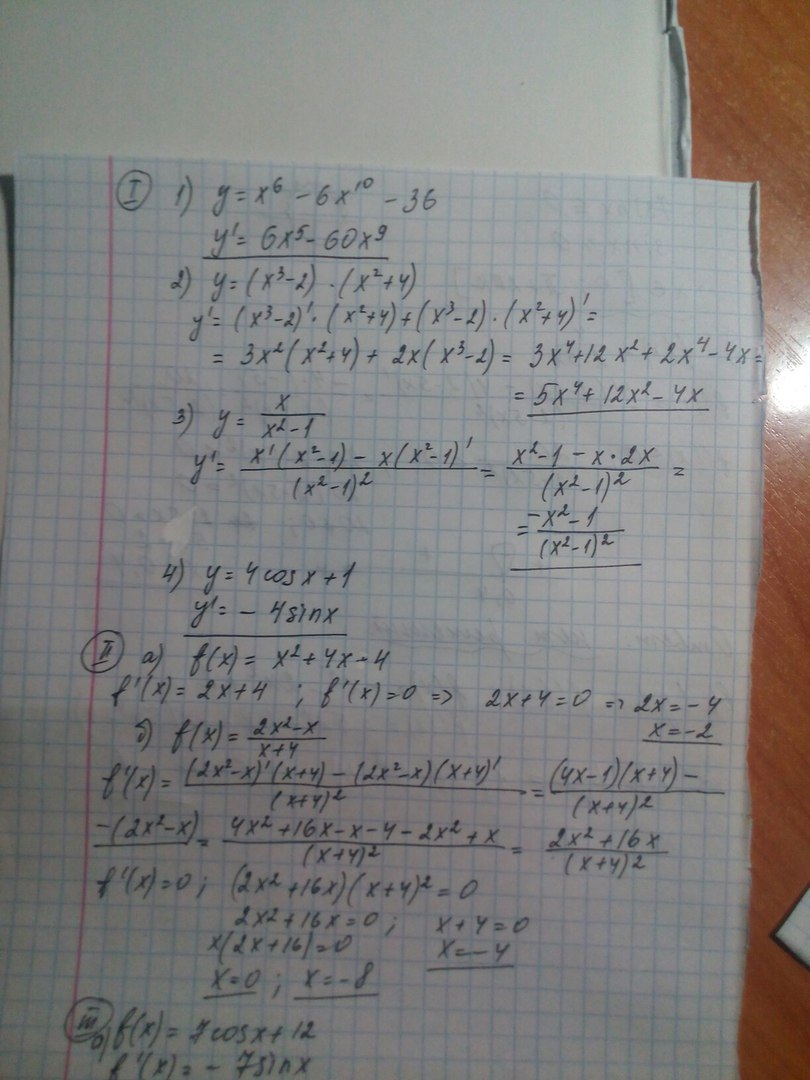 I 1) y = x⁶ - 6x¹⁰ - 36
y' = 6x⁵ - 60x⁹
2) y = (x³-2) · (x²+4)
y' = (x³-2)' · (x²+4) + (x³-2) · (x²+4)' =
= 3x²(x²+4) + 2x(x³-2) = 3x⁴+12x²+2x⁴-4x=
= 5x⁴+12x²-4x
3) y = x/(x²-1)
y' = (x'(x²-1) - x(x²-1)')/(x²-1)² = (x²-1-x·2x)/(x²-1)² =
= (-x²-1)/(x²-1)²
4) y = 4cosx+1
y' = - 4sinx
II а) f(x) = x²+4x-4
f'(x) = 2x+4 ; f'(x)=0 => 2x+4=0 => 2x=-4
x=-2
б) f(x) = (2x²-x)/(x+4)
f'(x) = ((2x²-x)'(x+4) - (2x²-x)(x+4)')/(x+4)² = ((4x-1)(x+4) -)/(x+4)²
-(2x²-x) = (4x²+16x-x-4-2x²+x)/(x+4)² = (2x²+16x)/(x+4)²
f'(x)=0 ; (2x²+16x)(x+4)²=0
2x²+16x=0 ; x+4=0
x(2x+16)=0 x=-4
x=0 ; x=-8
III f(x) = 7cosx+12
f'(x) = - 7sinx